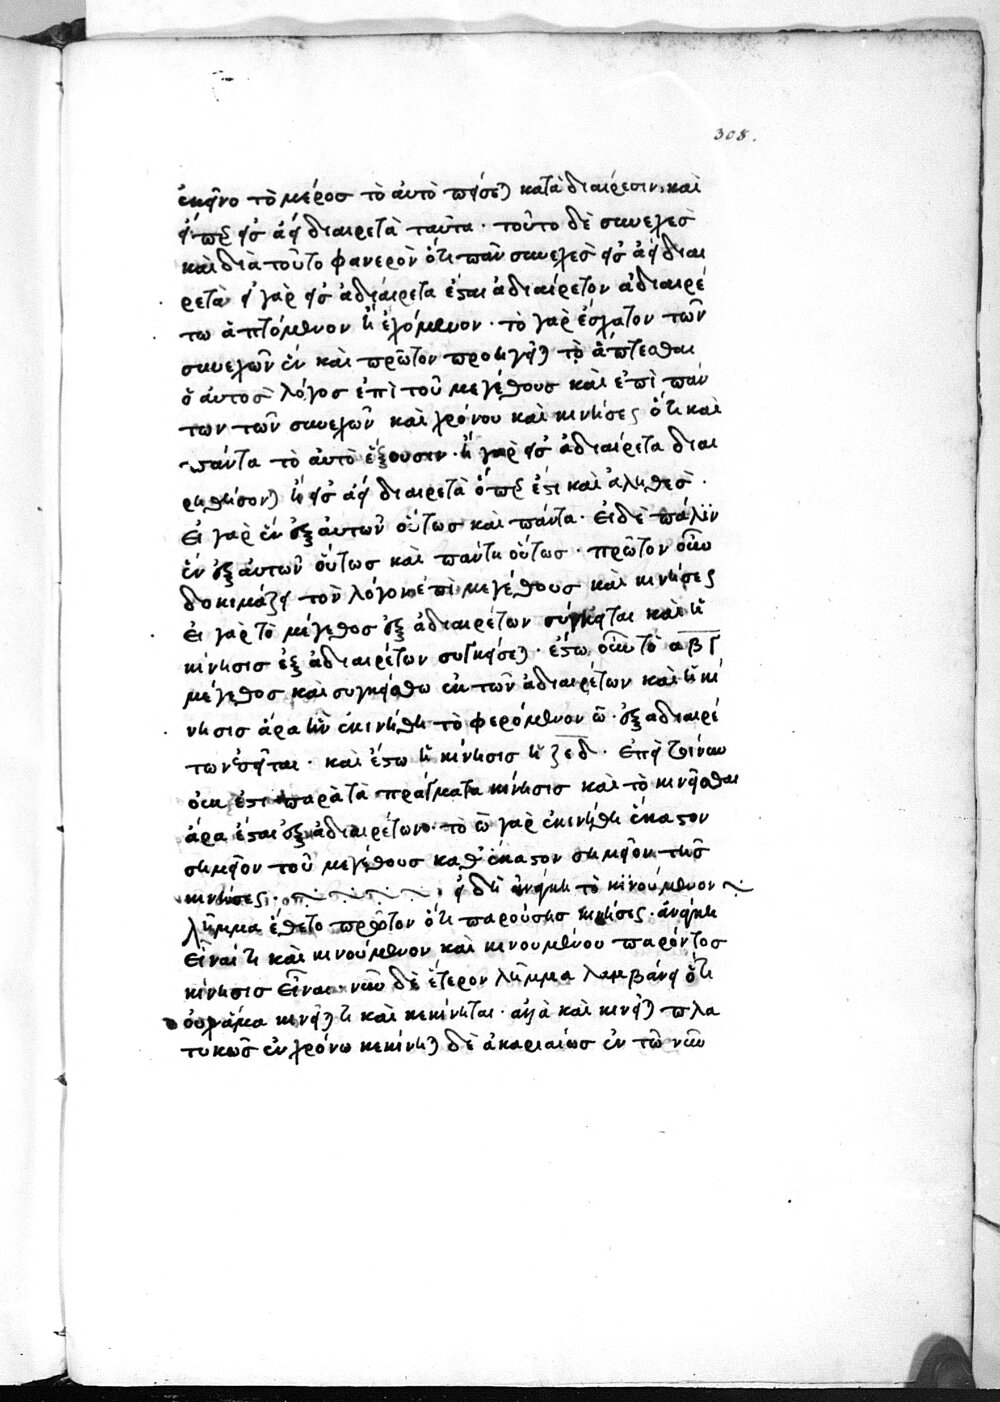 308.
ἐκεῖνο τὸ μέρος τὸ αὐτὸ πείσεται κατὰ διαίρεσιν καὶ
εἴπερ εἰς ἀεὶ διαιρετὰ ταῦτα · τοῦτο δὲ συνεχὲς
καὶ διὰ τοῦτο φανερὸν ὅτι πᾶν συνεχὲς εἰς ἀεὶ διαι
ρετὰ εἰ γὰρ εἰς ἀδιαίρετα ἔσται ἀδιαίρετον ἀδιαιρέ
τω ἁπτόμενον ἢ ἐχόμενον · τὸ γὰρ ἔσχατον τῶν
συνεχῶν ἓν καὶ πρῶτον προηγεῖται τὸ ἅπτεσθαι
ὁ αὐτὸς λόγος ἐπὶ τοῦ μεγέθους καὶ ἐπὶ πάν
των τῶν συνεχῶν καὶ χρόνου καὶ κινήσεως ὅτι καὶ
πάντα τὸ αὐτὸ ἕξουσιν · ἢ γὰρ εἰς ἀδιαίρετα διαι
ρεθήσονται ἢ εἰς ἀεὶ διαιρετὰ ὅπερ ἐστὶ καὶ ἀληθὲς ·
εἰ γὰρ ἓν ἐξ αὐτῶν οὕτως καὶ πάντα · εἰ δὲ πάλιν
ἓν ἐξ αὐτῶν οὕτως καὶ πάντη οὕτως · πρῶτον οὖν
δοκιμάζει τὸν λόγον ἐπὶ μεγέθους καὶ κινήσεως
εἰ γὰρ τὸ μέγεθος ἐξ ἀδιαιρέτων σύγκειται καὶ ἡ
κίνησις ἐξ ἀδιαιρέτων συγκείσεται · ἔστω οὖν τὸ αβγ
μέγεθος καὶ συγκείσθω ἐκ τῶν ἀδιαιρέτων καὶ ἡ κί
νησις ἄρα ἣν ἐκινήθη τὸ φερόμενον ω · ἐξ ἀδιαιρέ
των ἔσται · καὶ ἔστω ἡ κίνησις ἡ ζεδ · ἐπεὶ τοίνυν
οὐκ ἔστι παρὰ τὰ πράγματα κίνησις καὶ τὸ κινεῖσθαι
ἄρα ἔσται ἐξ ἀδιαιρέτων · τὸ ω γὰρ ἐκινήθη ἕκαστον
σημεῖον τοῦ μεγέθους καθ' ἕκαστον σημεῖον τῆς
κινήσεως · εἰ δὴ ἀνάγκη τὸ κινούμενον
λῆμμα ἔθετο πρῶτον ὅτι παρούσης κινήσεως · ἀνάγκη
εἶναί τι καὶ κινούμενον καὶ κινουμένου παρόντος
κίνησις εἶναι · νῦν δὲ ἕτερον λῆμμα λαμβάνει ὅτι
οὐχ ἅμα κινεῖταί τι καὶ κεκίνηται · ἀλλὰ καὶ κινεῖται πλα
τυκῶς ἐν χρόνω κεκίνηται δὲ ἀκαριαίως ἐν τῶ νῦν